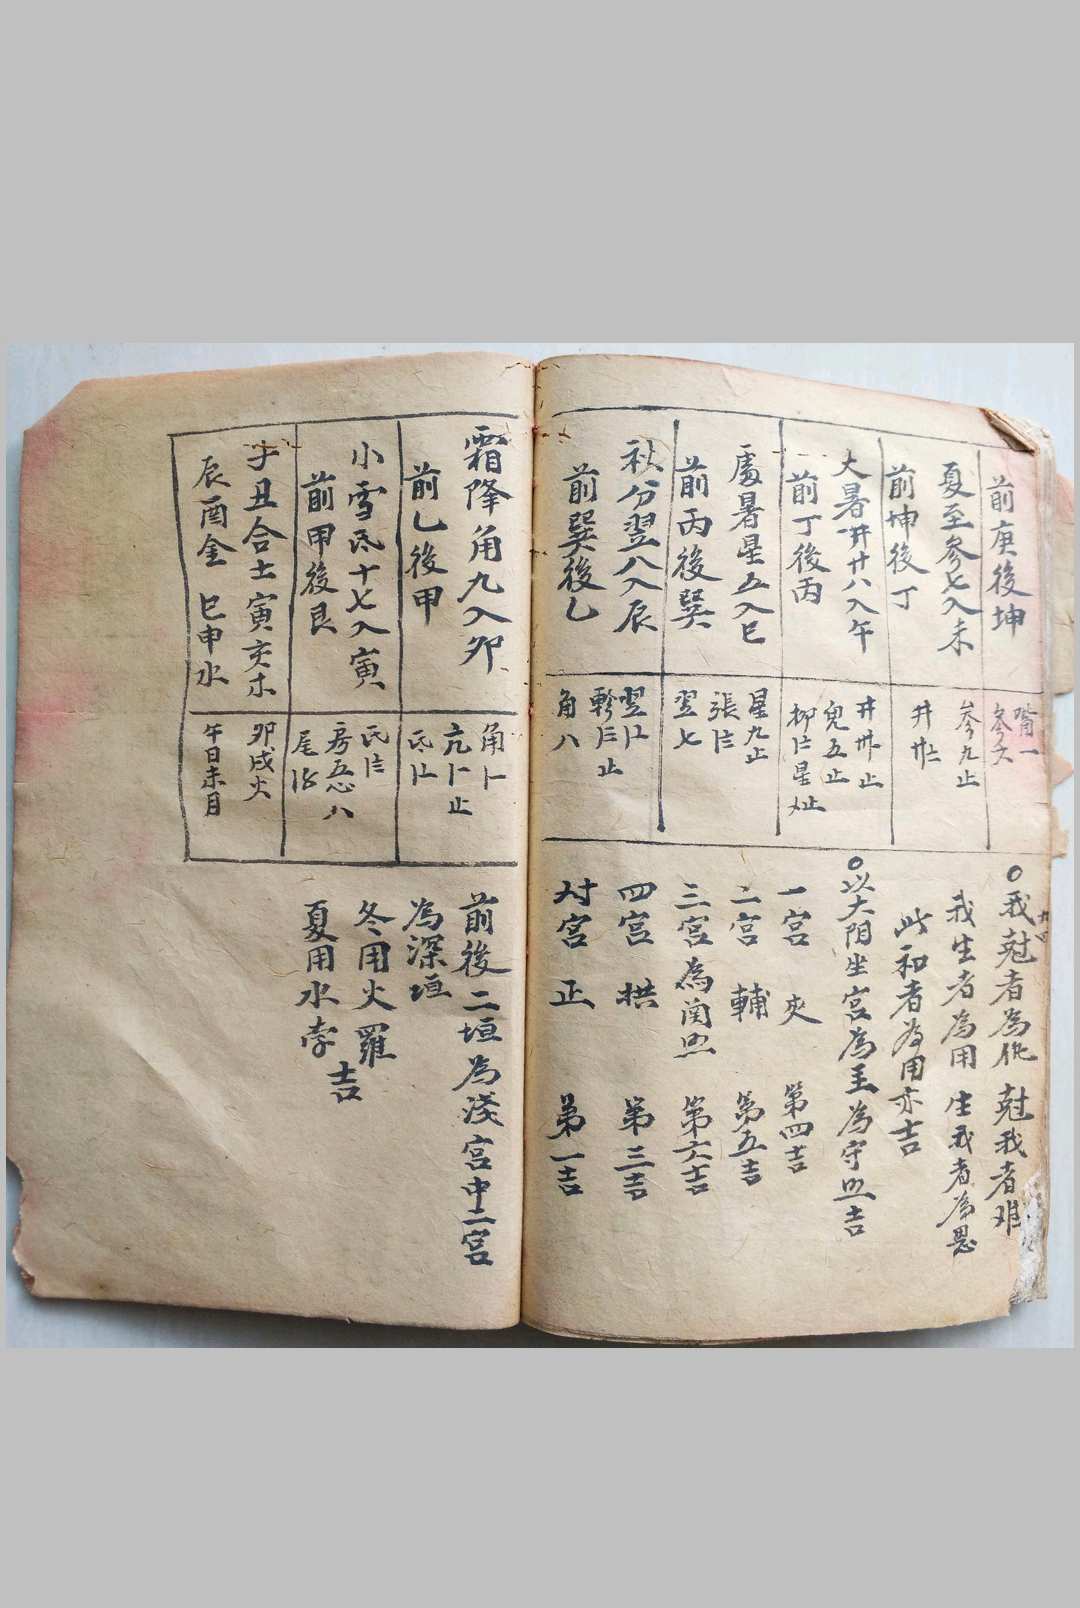 前庚後坤
夏至參七入未
前坤後丁
大暑井廿八入午
前丁後丙
處暑星五入巳
前丙後巽
秋分翌八入辰
前巽後乙
觜一
參九止
井
井卅止
鬼五止
星九止
翌七
角八
○我尅者為仇 尅我者难
我生者為用 生我者為恩
此和者為用亦吉
○以大阳坐宫為主為守照吉
一宫 夾 第四吉
二宫 輔 第五吉
三宫為関照 第六吉
四宫 拱 第三吉
对宫 正 第一吉
霜降角九入卯
前乙後甲
小雪氐十七入寅
前甲後艮
子丑合土寅亥木
辰酉金 巳申水
房五心八
卯戌火
午日未月
前後二垣為浅宫中二宫
為深垣
冬用火羅
夏用水孛
吉